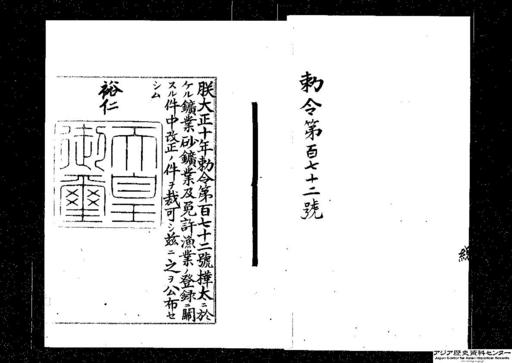 勅令第百七十二號
朕大正十年勅令第百七十二號樺太ニ於
ケル鑛業砂鑛業及免許漁業ノ登録ニ關
スル件中改正ノ件ヲ裁可シ茲ニ之ヲ公布セ
シム
裕仁
天皇
御璽
アジア歴史資料センター
Japan Center for Asian Historical Records